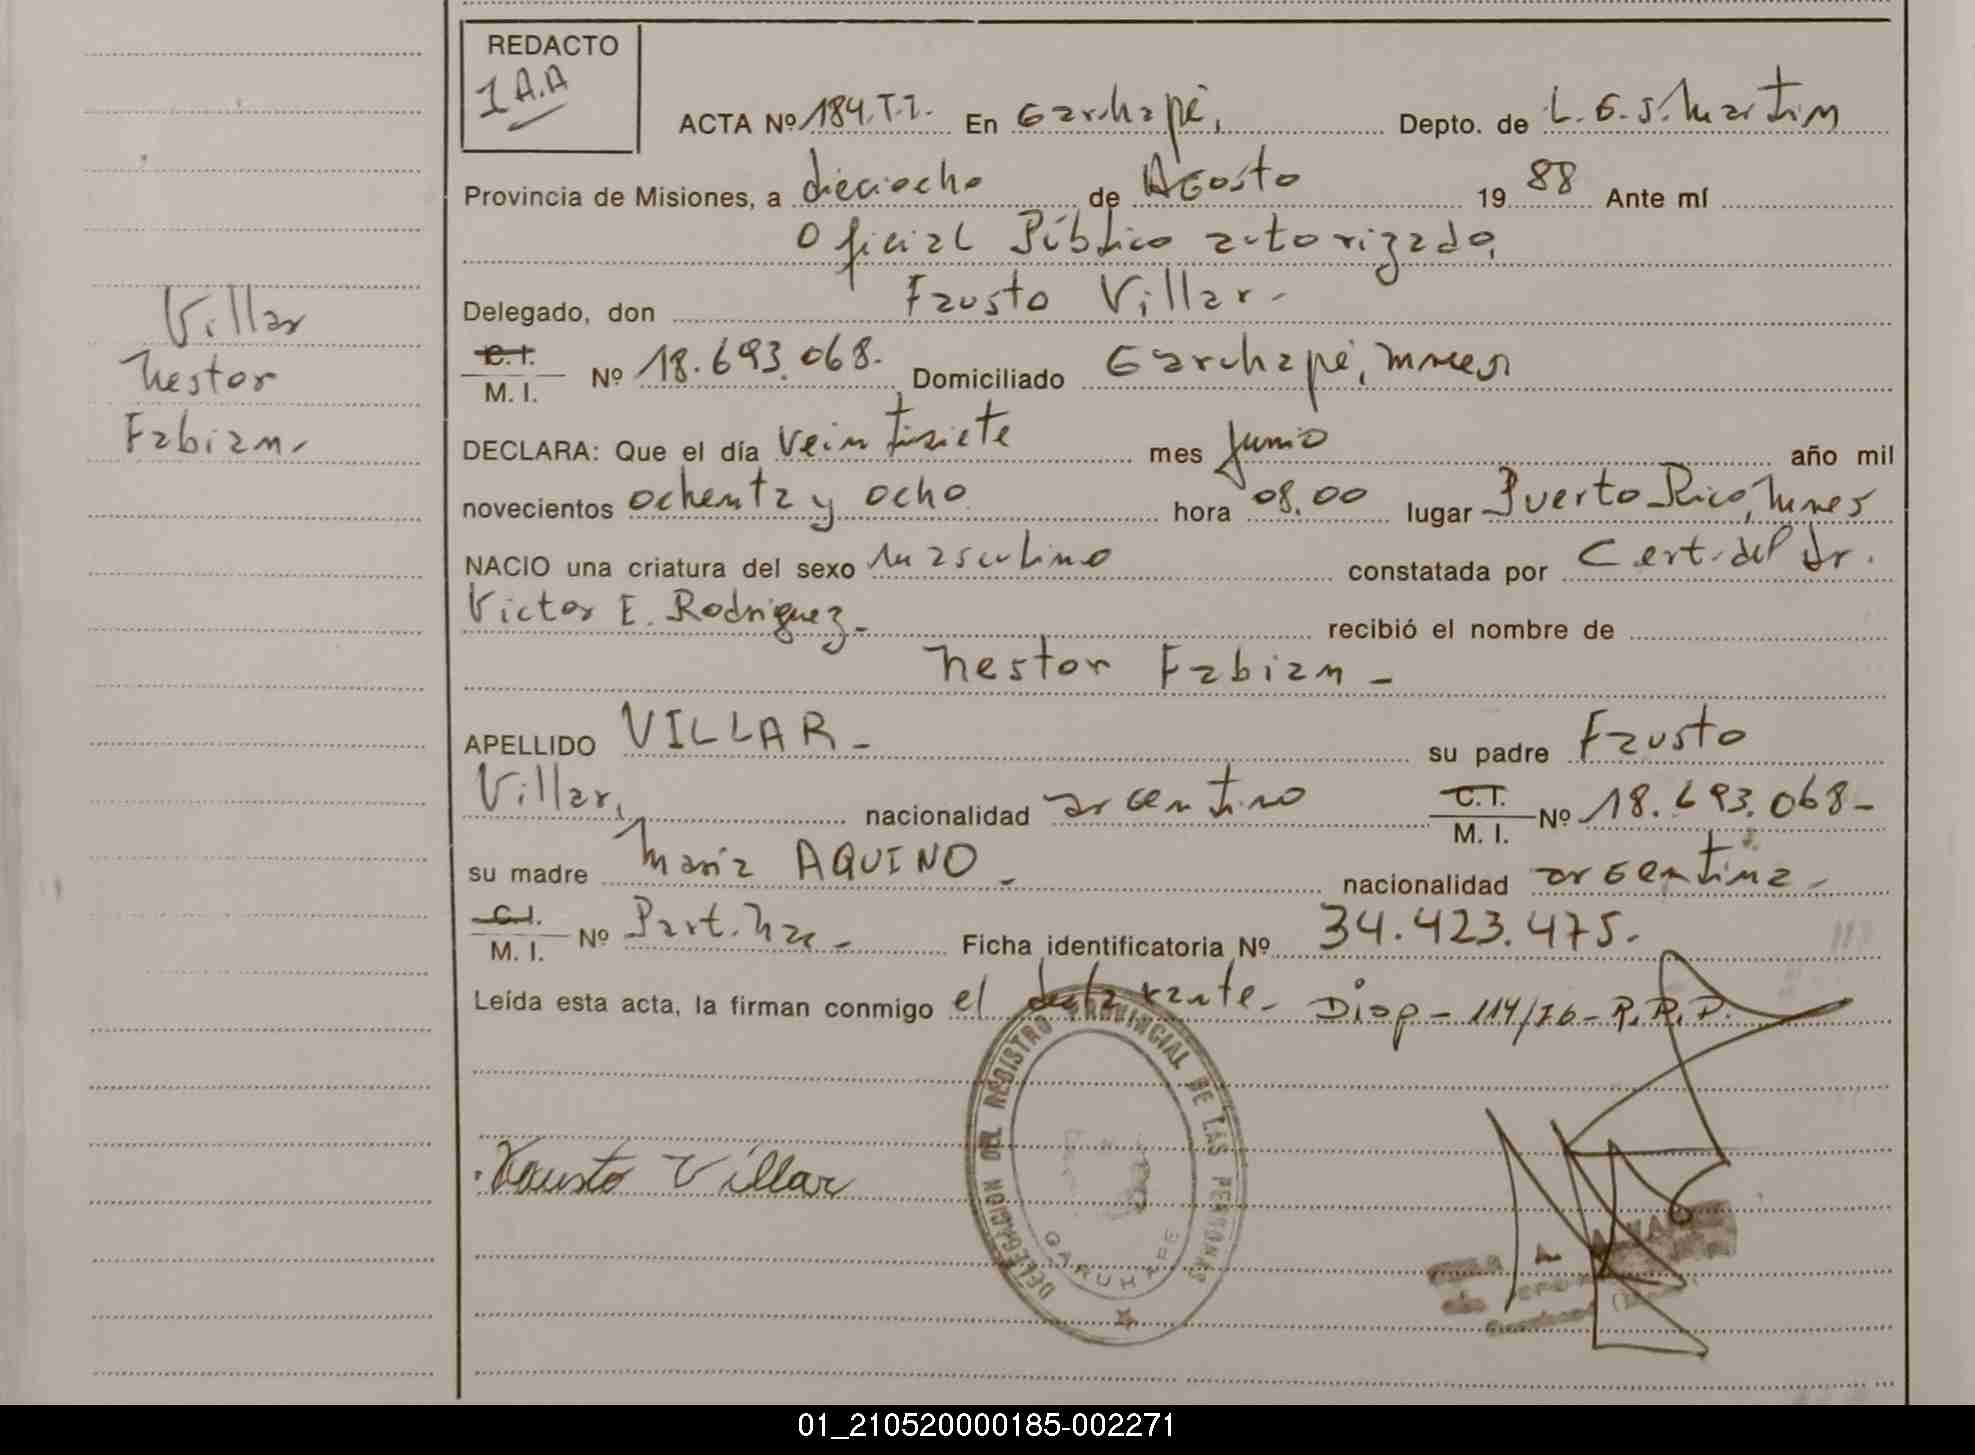 REDACTO
1 A.A
ACTA Nº 184.T.I. En Garuhapé, Depto. de L. G. S. Martin
Provincia de Misiones, a dieciocho de Agosto 19 88 Ante mí
Oficial Público autorizado,
Delegado, don Fausto Villar-
C.I. M. I. Nº 18.693.068. Domiciliado Garuhapé,
Villar
Nestor
Fabian-
DECLARA: Que el día Veintisiete mes Junio año mil
novecientos ochenta y ocho hora 08,00 lugar Puerto Rico,
NACIO una criatura del sexo masculino constatada por Cert. del Dr.
Victor E. Rodriguez- recibió el nombre de
Nestor Fabian -
APELLIDO VILLAR - su padre Fausto
Villar, nacionalidad argentino C.I. M. I. Nº 18.693.068-
su madre Maria AQUINO - nacionalidad argentina-
C.I. M. I. Nº Part. Nac - Ficha identificatoria Nº 34.423.475.
Leída esta acta, la firman conmigo el declarante- Disp - 114/76- R.R.P.
Fausto Villar
DELEGACION DEL REGISTRO PROVINCIAL DE LAS PERSONAS
GARUHAPE
01_210520000185-002271